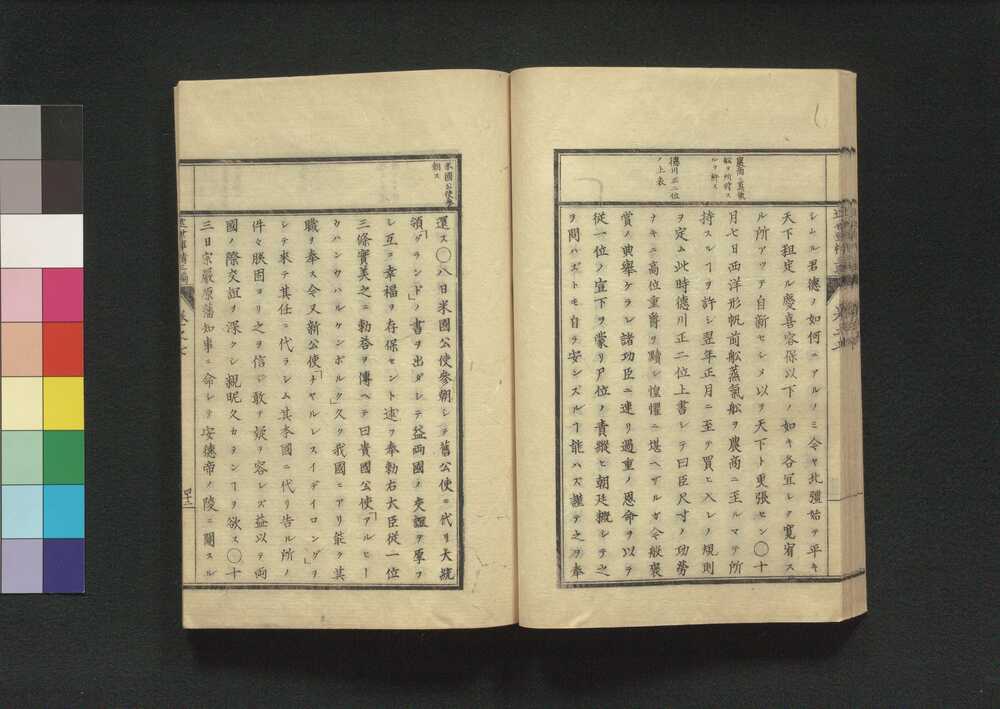 農商ニ蒸氣
舩ヲ所持ス
ルヲ許ス
德川正二位
ノ上表
シムル君德ノ如何ニアルノミ令ヤ北彊始テ平キ
天下稍定ル慶喜容保以下ノ如キ各宜シク寛宥ス
ル所アツテ自新セシメ以テ天下ト更張セン〇十
月七日西洋形帆前舩蒸氣舩ヲ農商ニ至ルマテ所
持スルヿヲ許シ翌年正月ニ至テ買ヒ入レノ規則
ヲ定ム此時德川正二位上書シテ曰臣尺寸ノ功勞
ナキニ高位重爵ヲ黷シ惶懼ニ堪ヘザルガ令般褒
賞ノ典舉ケラレ諸功臣ニ連リ過重ノ恩命ヲ以テ
從一位ノ宣下ヲ蒙リ尸位ノ責縱ヒ朝廷概シテ之
ヲ問ハズトモ自ラ安シズルヿ能ハズ謹テ之ヲ奉
米國公使參
朝ス
還ス〇八日米國公使參朝シテ舊公使ニ代リ大統
領「グランド」ノ書ヲ出ダシテ益両國ノ交誼ヲ厚フ
シ互ニ幸福ヲ存保セント述フ奉勅右大臣從一位
三條實美之ニ勅答ヲ傳ヘテ曰貴國公使「アルヒー
ワハンウハルケンボルク」久ク我國ニアリ能ク其
職ヲ奉ス令又新公使「チヤルレスイデイロング」ヲ
シテ來テ其任ニ代ラシム其本國ニ代リ告ル所ノ
件々朕固ヨリ之ヲ信シ敢テ疑ヲ容レズ益以テ両
國ノ際交誼ヲ深クシ親昵久カランヿヲ欲ス〇十
三日宗嚴原藩知事ニ命シテ安德帝ノ陵ニ關スル
卷二十七
四十二